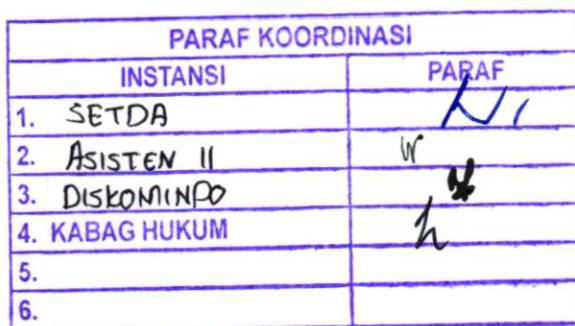 PARAF KOORDINASI
INSTANSI PARAF
1. SETDA
2. ASISTEN II
3. DISKOMINPO
4. KABAG HUKUM
5.
6.